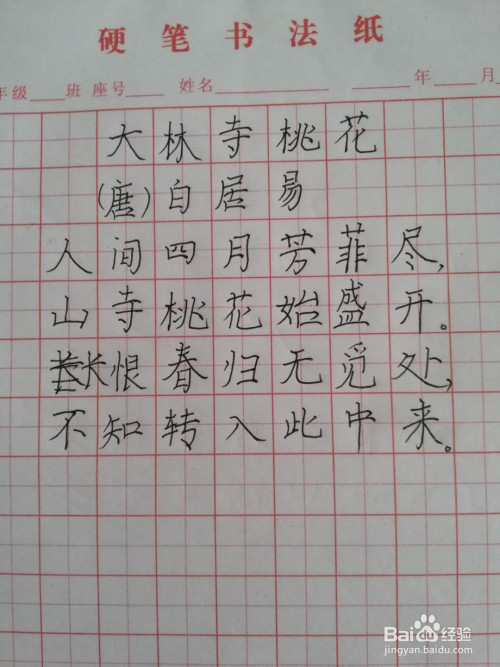 硬笔书法纸
年级 班 座号 姓名 年 月
大林寺桃花
(唐)白居易
人间四月芳菲尽,
山寺桃花始盛开。
长恨春归无觅处,
不知转入此中来。
Baidu经验
jingyan.baidu.com